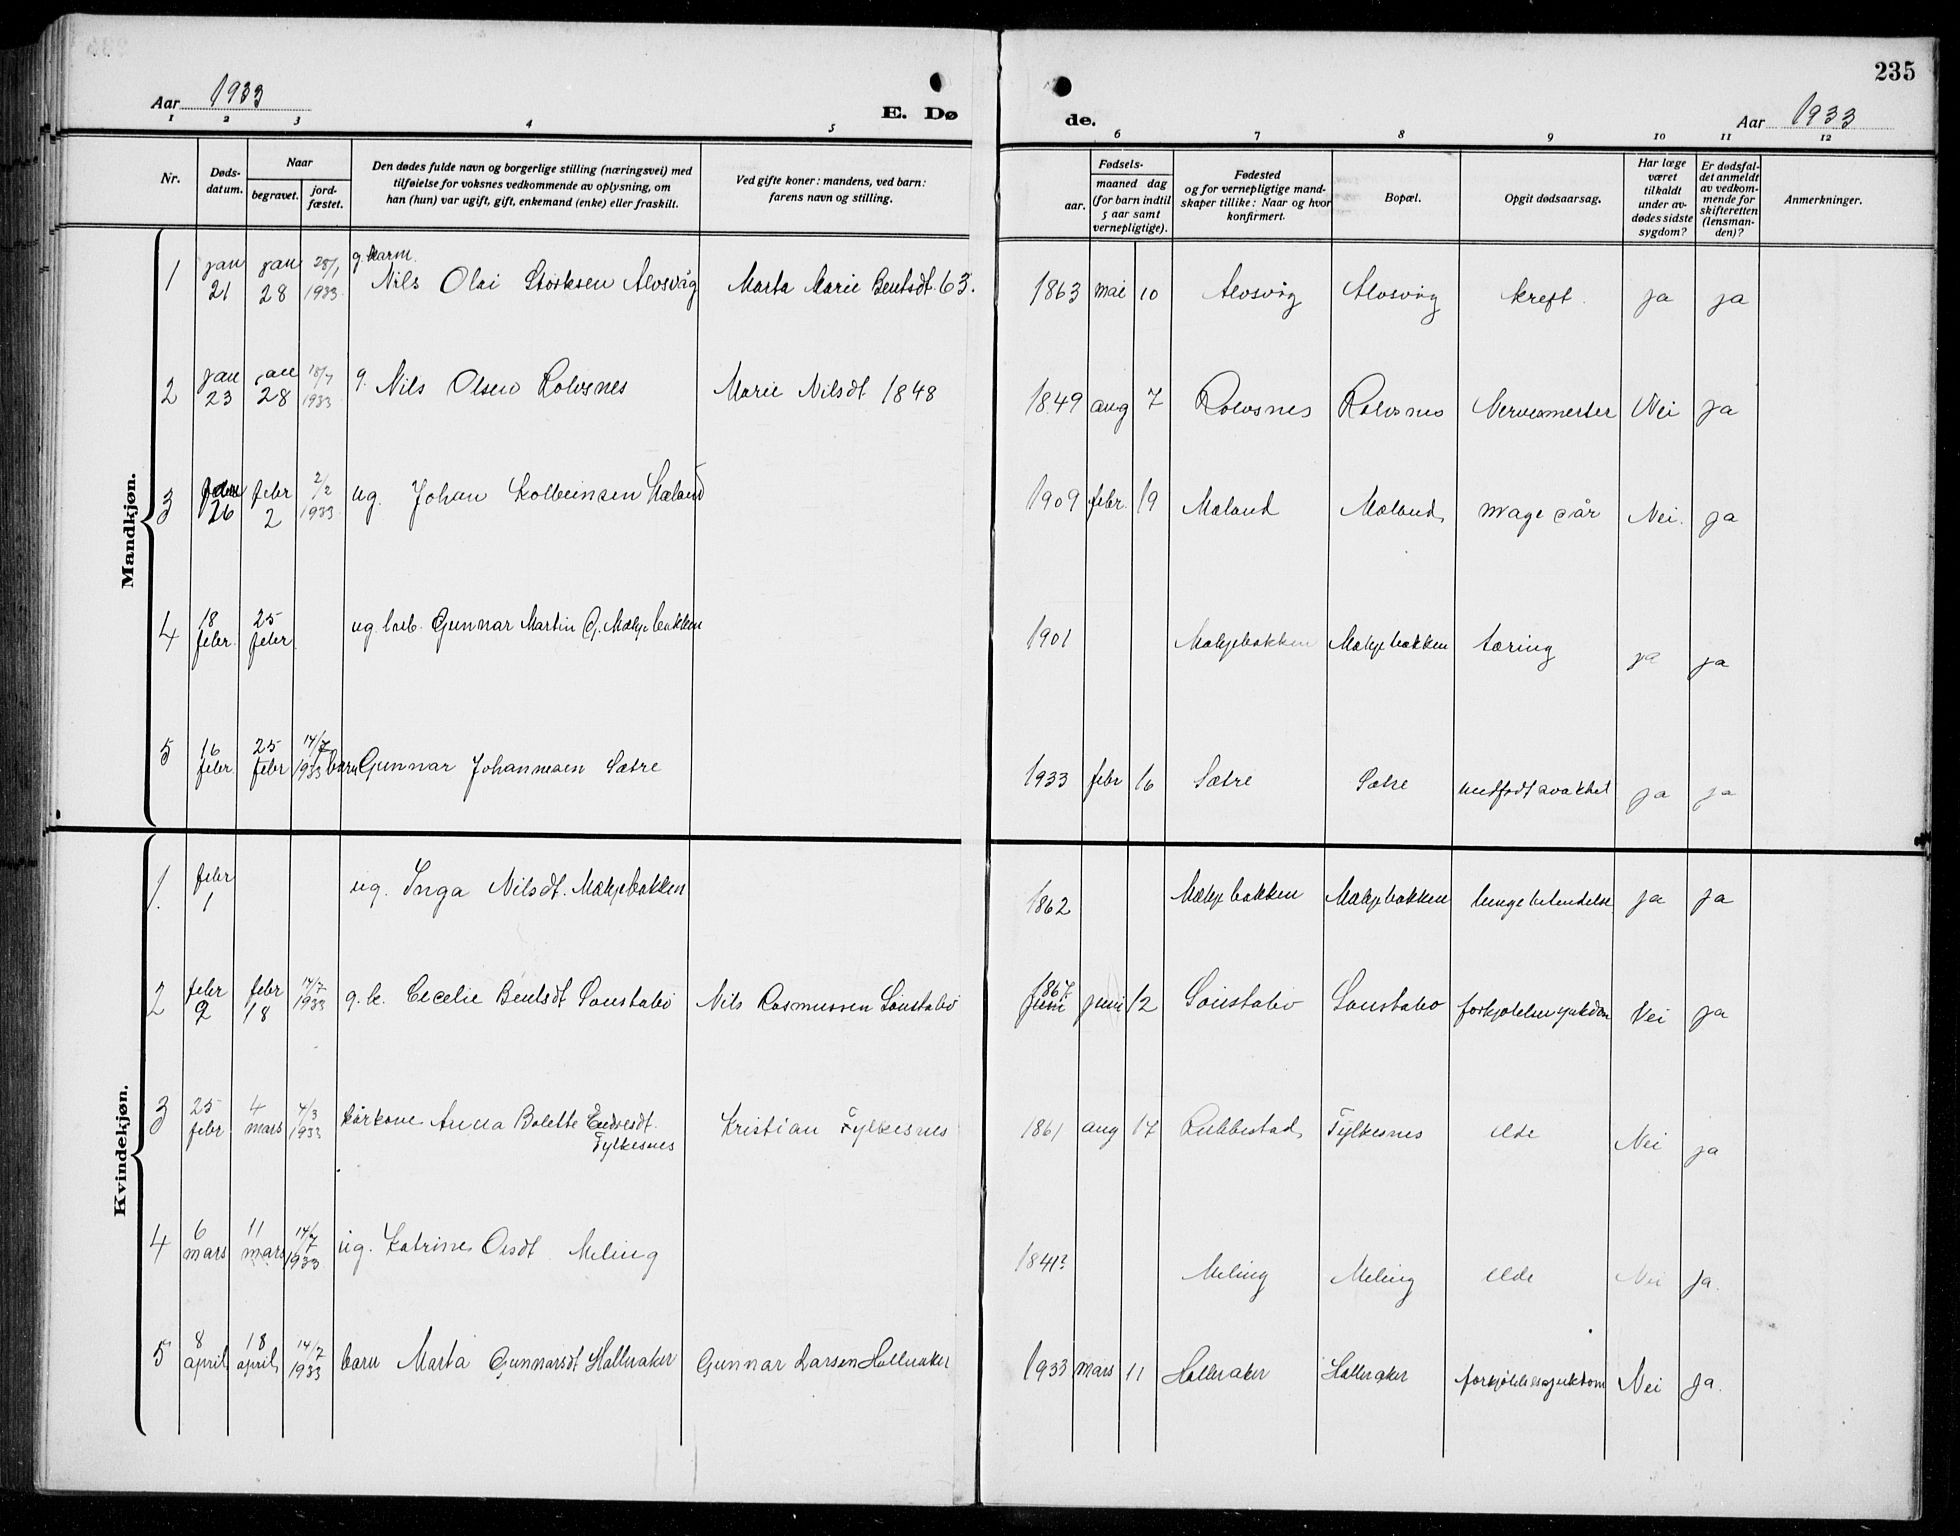 235
Aar 1933
E. Dø
de.
Aar 1933
1 2 3 4 5 6 7 8 9 10 11 12
Nr.
Døds-
datum.
Naar
begravet.
jord-
fæstet.
Den dødes fulde navn og borgerlige stilling (næringsvei) med
tilføielse for voksnes vedkommende av oplysning, om
han (hun) var ugift, gift, enkemand (enke) eller fraskilt.
Ved gifte koner: mandens, ved barn:
farens navn og stilling.
Fødsels-
aar.
maaned dag
(for barn indtil
5 aar samt
vernepligtige).
Fødested
og for vernepligtige mand-
skaper tillike: Naar og hvor
konfirmert.
Bopæl.
Opgit dødsaarsag.
Har læge
været
tilkaldt
under av-
dødes sidste
sygdom?
Er dødsfal-
det anmeldt
av vedkom-
mende for
skifteretten
(lensman-
den)?
Anmerkninger.
Mandkjøn.
1 jan 21 jan 28 28/1 1933 g. karm. Nils Olai Storksen Alvsvåg Marta Marie Bentsdt. 63. 1863 mai 10 Alvsvåg Alvsvåg kreft. ja ja
2 jan 23 jan 28 1933 g. Nils Olsen Rolvsnes Marie Nilsdt 1848 1849 aug 7 Rolvsnes Rolvsnes Nervesmerter Nei ja
3 26 febr 2 2/2 1933 ug. Johan Kolbeinsen Mæland 1909 febr. 19 Mæland Mæland magesår Nei. ja
4 18 febr. 25 febr. ug. Gunnar Martin G. Mækjebakken 1901 Mækjebakken Mækjebakken tæring ja ja
5 16 febr. 25 febr 14/7 1933 barn Gunnar Johannesen Sætre 1933 febr 16 Sætre Sætre medfødt svakhet ja ja
Kvindekjøn.
1. febr 1 ug. Inga Nilsdt. Mækjebakken 1862 Mækjebakken Mækjebakken lungebetendelse ja ja
2 febr 9 febr 18 14/7 1933 g. k. Cecelie Bentsdt Sønstabø Nils Rasmussen Sønstabø 1867 juni 12 Sønstabø Sønstabø forkjølelsessjukdom Nei ja
3 25 febr 4 mars 4/3 1933 kårkone Anna Bolette Endresdt. Fylkesnes Kristian Fylkesnes 1861 aug 17 Rubbestad Fylkesnes elde Nei ja
4 6 mars 11 mars 14/7 1933 ug. Katrine Olsdt. Meling 1841? Meling Meling elde Nei ja.
5 8 april 18 april 14/7 1933 barn Marta Gunnarsdt Halleraker Gunnar Larsen Halleraker 1933 mars 11 Halleraker Halleraker forkjølelsessjukdom Nei ja.